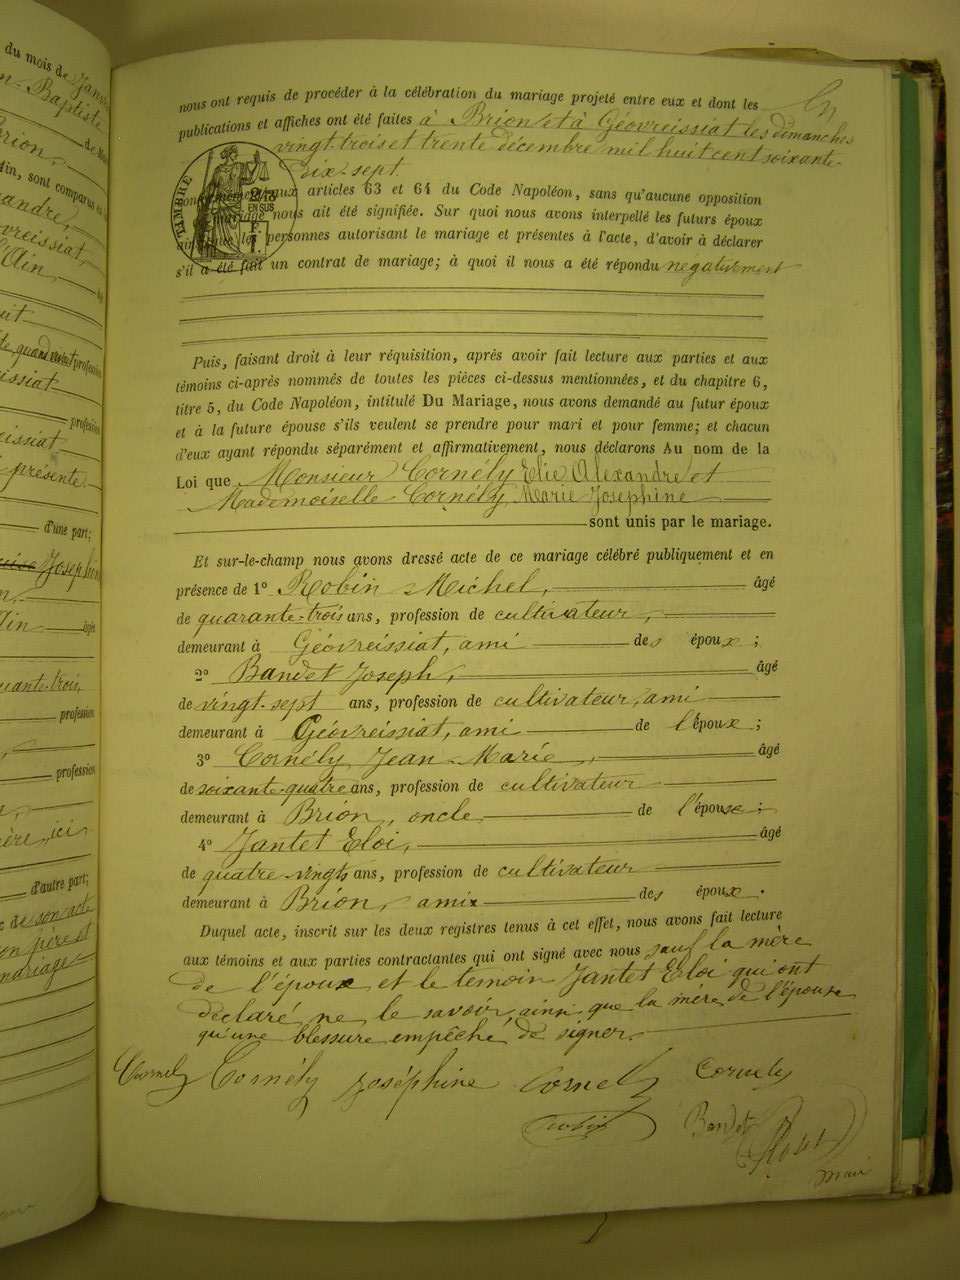 du mois de Janv
n Baptiste
Brion,
Ain, sont comparus
andre,
vreissiat,
l'Ain
uit
profession
issiat
profession
eissiat
présente
d'une part;
Joséphine
n.
Ain
uante-trois
profession
profession
ère, ici
d'autre part;
de son acte
on père et
mariage
nous ont requis de procéder à la célébration du mariage projeté entre eux et dont les
publications et affiches ont été faites à Brion et à Géovreissiat les dimanches
vingt-trois et trente décembre mil huit cent soixante-
dix-sept
TIMBRE
2/10
EN SUS
conformément aux articles 63 et 64 du Code Napoléon, sans qu'aucune opposition
au mariage nous ait été signifiée. Sur quoi nous avons interpellé les futurs époux
ainsi que les personnes autorisant le mariage et présentes à l'acte, d'avoir à déclarer
s'il a été fait un contrat de mariage; à quoi il nous a été répondu négativement
Puis, faisant droit à leur réquisition, après avoir fait lecture aux parties et aux
témoins ci-après nommés de toutes les pièces ci-dessus mentionnées, et du chapitre 6,
titre 5, du Code Napoléon, intitulé Du Mariage, nous avons demandé au futur époux
et à la future épouse s'ils veulent se prendre pour mari et pour femme; et chacun
d'eux ayant répondu séparément et affirmativement, nous déclarons Au nom de la
Loi que Monsieur Cornély Elie Alexandre et
Mademoiselle Cornély, Marie Joséphine
sont unis par le mariage.
Et sur-le-champ nous avons dressé acte de ce mariage célébré publiquement et en
présence de 1º Robin Michel, âgé
de quarante-trois ans, profession de cultivateur,
demeurant à Géovreissiat, ami des époux;
2º Bandet Joseph, âgé
de vingt-sept ans, profession de cultivateur, ami
demeurant à Géovreissiat, ami de l'époux;
3º Cornély Jean Marie, âgé
de soixante-quatre ans, profession de cultivateur
demeurant à Brion, oncle de l'épouse;
4º Jantet Eloi, âgé
de quatre-vingts ans, profession de cultivateur
demeurant à Brion, ami des époux.
Duquel acte, inscrit sur les deux registres tenus à cet effet, nous avons fait lecture
aux témoins et aux parties contractantes qui ont signé avec nous sauf la mère
de l'époux et le témoin Jantet Eloi qui ont
déclaré ne le savoir, ainsi que la mère de l'épouse
qu'une blessure empêche de signer.
Cornely Cornély Joséphine Cornely Cornely
Robin Bandet
maire